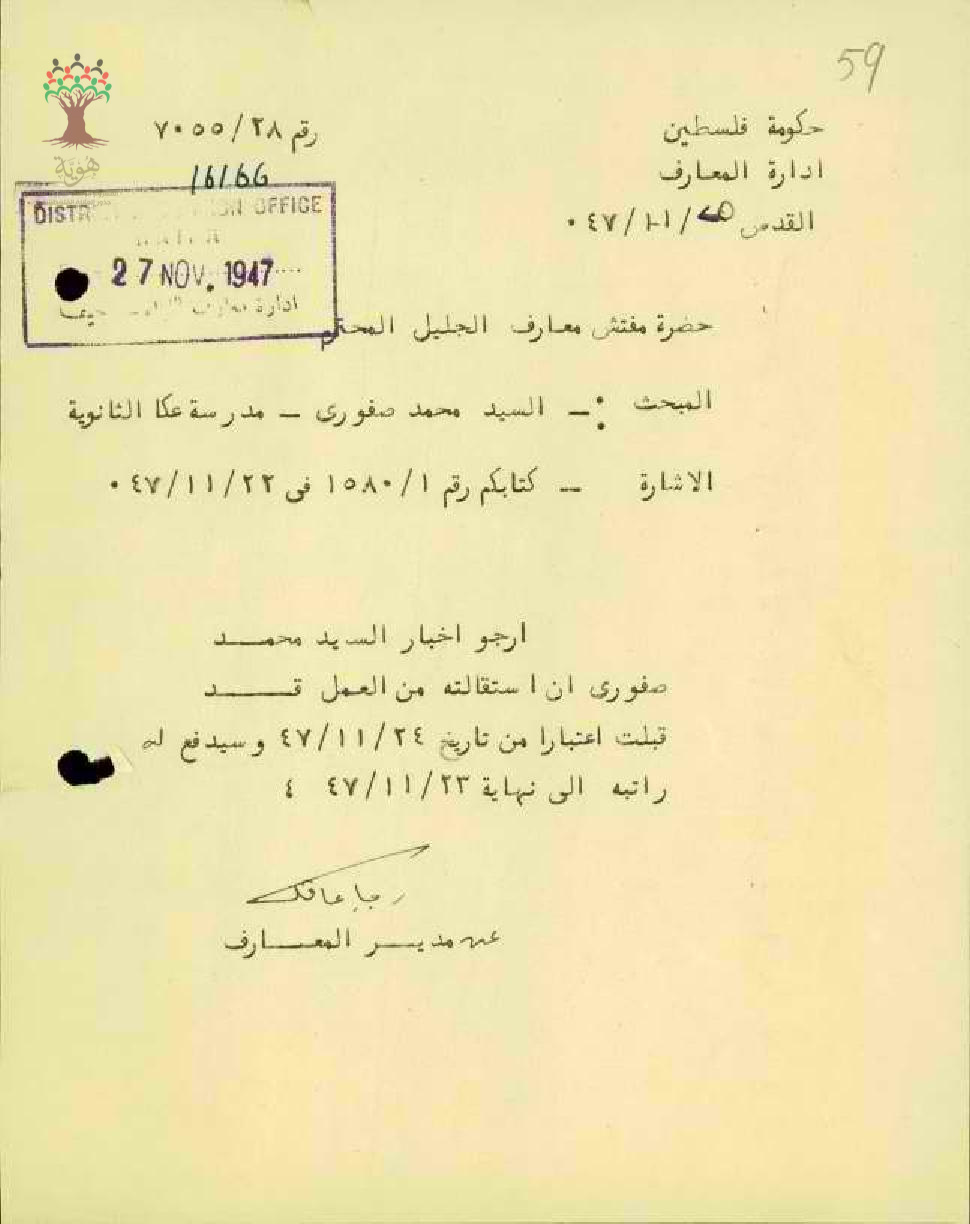 59
حكومة فلسطين
ادارة المعارف
القدس ٢٥/١١/٤٧٠
رقم ٧٠٥٥/٢٨
هوية
DISTR OFFICE
27 NOV. 1947
ادارة معارف حيفا
حضرة مفتش معارف الجليل المحترم
المبحث :- السيد محمد صفورى - مدرسة عكا الثانوية
الاشارة - كتابكم رقم ١٥٨٠/١ فى ٤٧/١١/٢٢٠
ارجو اخبار السيد محمــد
صفورى ان استقالته من العمل قــد
قبلت اعتبارا من تاريخ ٤٧/١١/٢٤ وسيدفع له
راتبه الى نهاية ٤٧/١١/٢٣ ٤
عن مديــر المعــارف